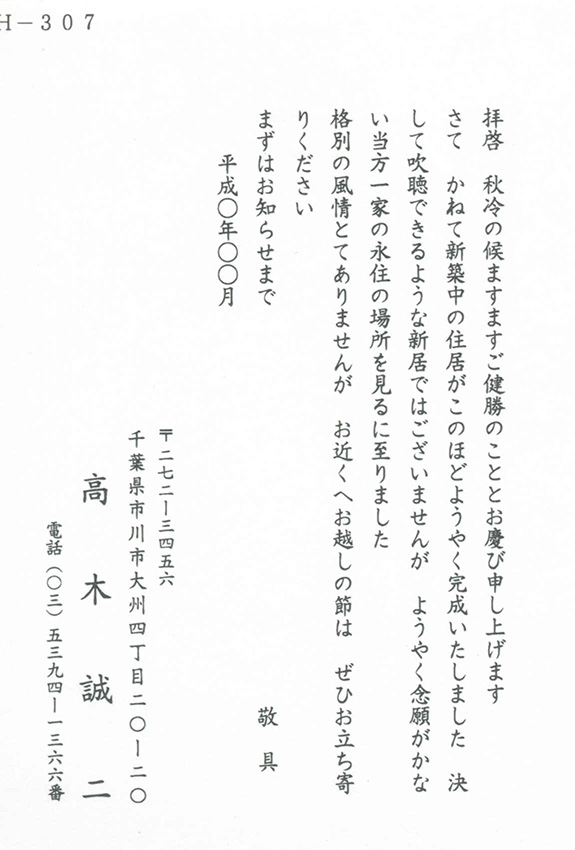 H－307
拝啓　秋冷の候ますますご健勝のこととお慶び申し上げます
さて　かねて新築中の住居がこのほどようやく完成いたしました　決
して吹聴できるような新居ではございませんが　ようやく念願がかな
い当方一家の永住の場所を見るに至りました
格別の風情とてありませんが　お近くへお越しの節は　ぜひお立ち寄
りください
まずはお知らせまで　敬具
平成〇年〇〇月
〒二七二―三四五六
千葉県市川市大州四丁目二〇―二〇
高木誠二
電話（〇三）五三九四―一三六六番